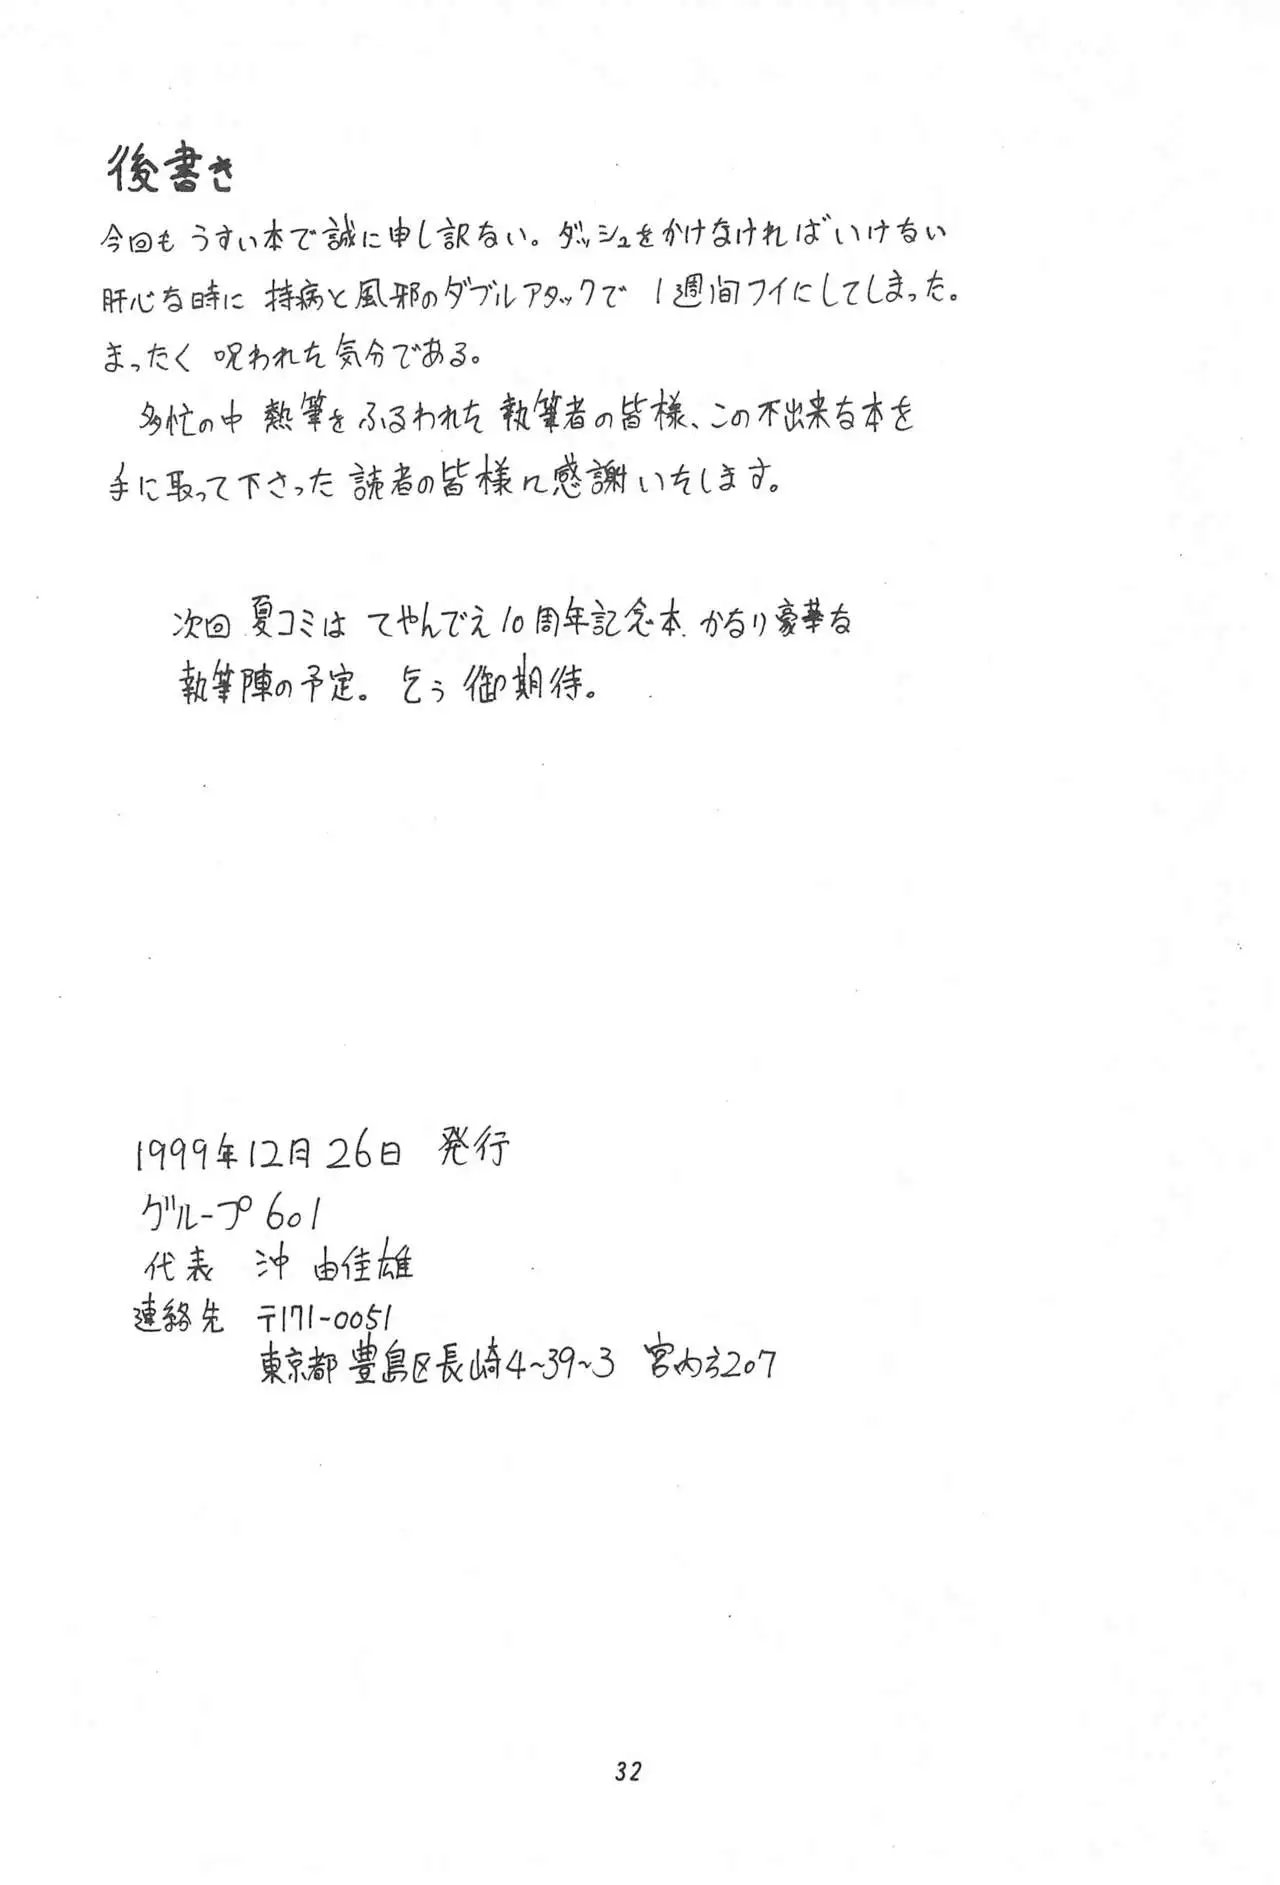 後書き
今回も うすい本で誠に申し訳ない。ダッシュをかけなければいけない
肝心な時に 持病と風邪のダブルアタックで 1週間フイにしてしまった。
まったく 呪われた気分である。
多忙の中 熱筆をふるわれた 執筆者の皆様、この不出来な本を
手に取って下さった 読者の皆様に感謝いたします。
次回 夏コミは てやんでえ10周年記念本. かなり豪華な
執筆陣の予定。 乞う 御期待。
1999年12月26日 発行
グループ601
代表 沖 由佳雄
連絡先 〒171-0051
東京都 豊島区長崎4~39~3 宮内方207
32